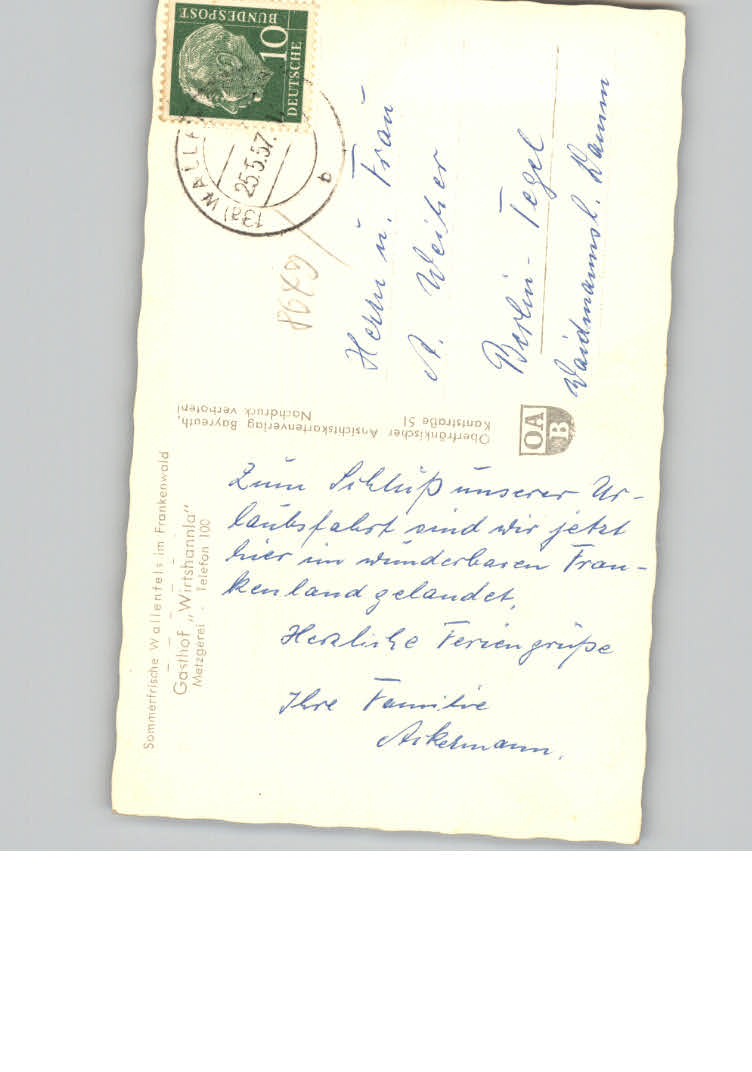 Sommerfrische Wallenfels im Frankenwald
Gasthof „Wirtshannla“
Metzgerei - Telefon 100
Zum Schluß unserer Ur-
laubsfahrt sind wir jetzt
hier im wunderbaren Fran-
kenland gelandet.
Herzliche Feriengrüße
Ihre Familie
Ackermann.
Oberfränkischer Ansichtskartenverlag Bayreuth,
Kantstraße 51
Nachdruck verboten!
OA
B
DEUTSCHE
BUNDESPOST
10
(13a) WALL
25.5.57.
b
8649
Herrn u. Frau
A. Weiher
Berlin-Tegel
Waidmannsl. Damm